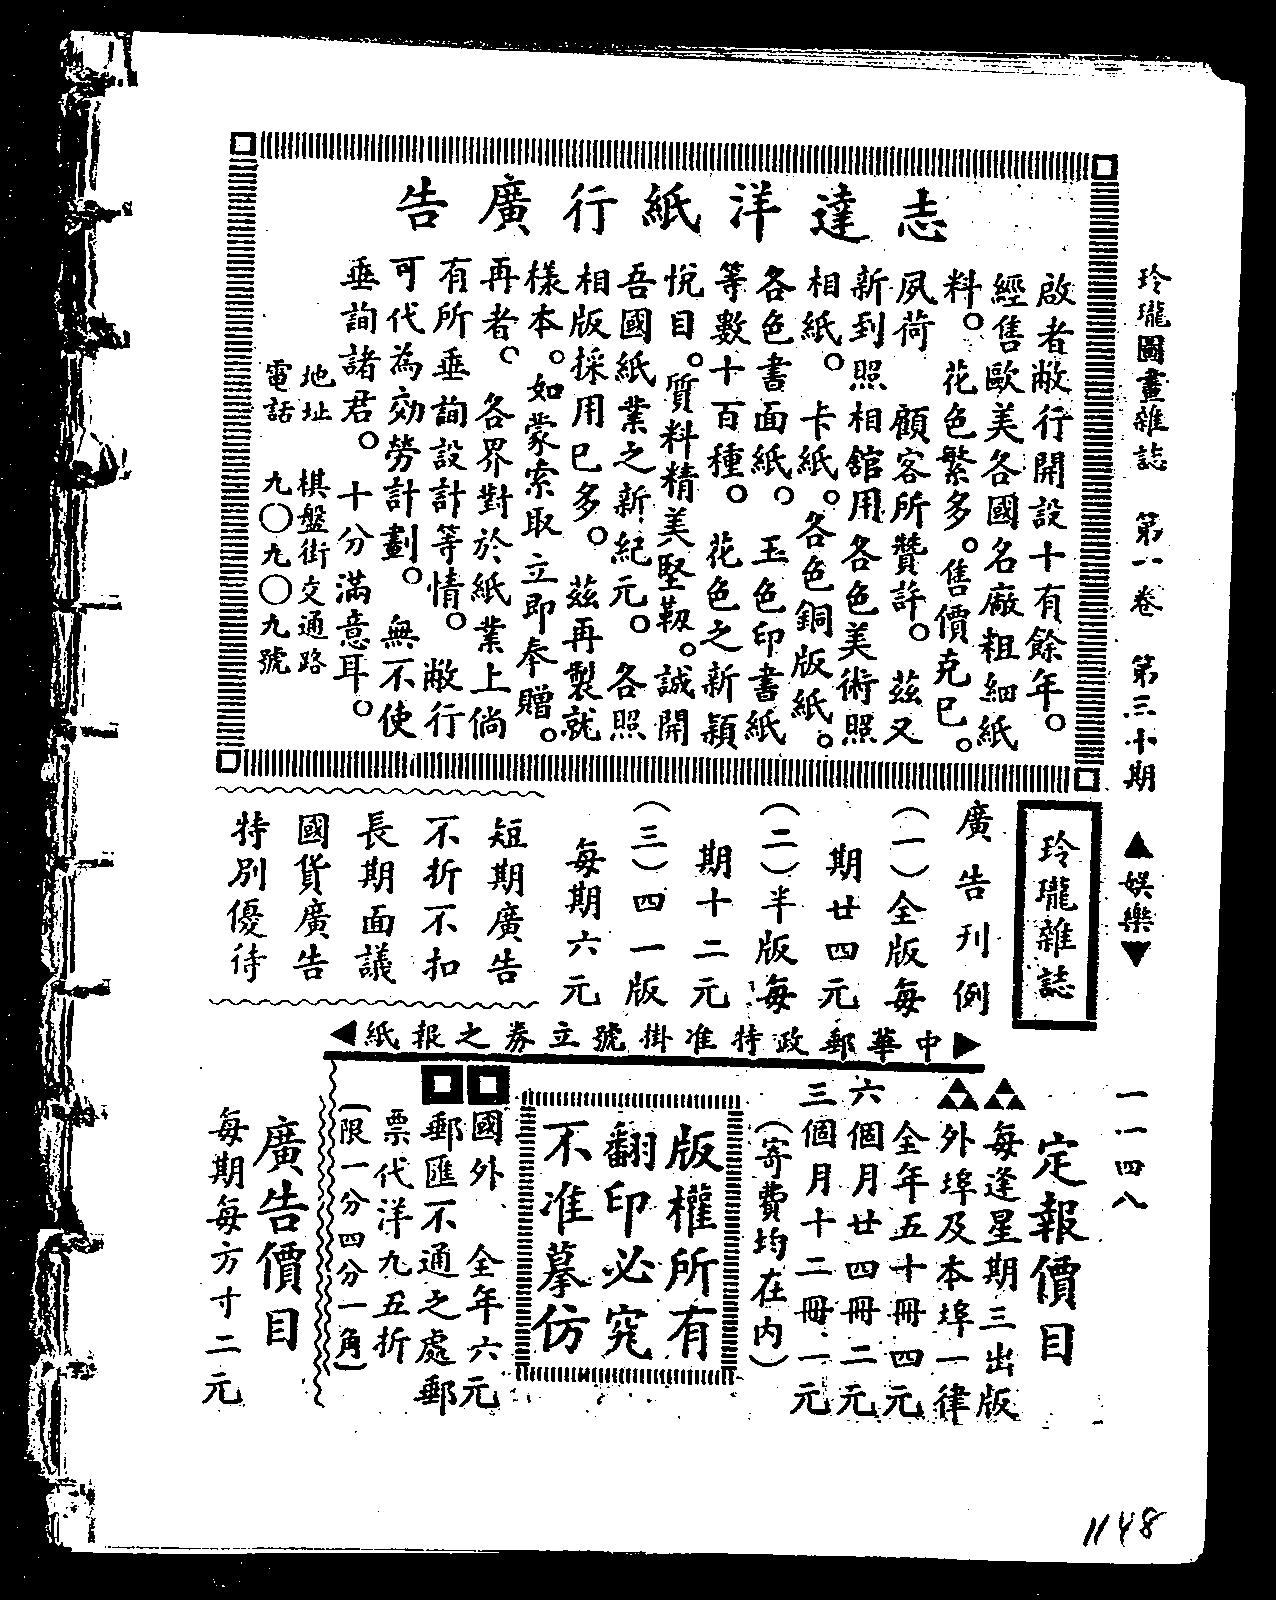 玲瓏圖畫雜誌 第一卷 第三十期 ▲娛樂▼ 一一四八
志達洋紙行廣告
啟者敝行開設十有餘年。
經售歐美各國名廠粗細紙
料。花色繁多。售價克已。
夙荷 顧客所贊許。茲又
新到照相舘用各色美術照
相紙。卡紙。各色銅版紙。
各色書面紙。玉色印書紙
等數十百種。花色之新穎
悅目。質料精美堅韌。誠開
吾國紙業之新紀元。各照
相版採用已多。茲再製就
樣本。如蒙索取立即奉贈。
再者。各界對於紙業上倘
有所垂詢設計等情。敝行
可代為効勞計劃。無不使
垂詢諸君。十分滿意耳。
地址 棋盤街交通路
電話 九〇九〇九號
玲瓏雜誌
廣告刊例
(一)全版每
期廿四元
(二)半版每
期十二元
(三)四一版
每期六元
短期廣告
不折不扣
長期面議
國貨廣告
特別優待
▶中華郵政特准掛號立劵之報紙◀
定報價目
每逢星期三出版
外埠及本埠一律
全年五十冊四元
六個月廿四冊二元
三個月十二冊一元
(寄費均在內)
版權所有
翻印必究
不准摹仿
國外 全年六元
郵匯不通之處郵
票代洋九五折
(限一分四分一角)
廣告價目
每期每方寸二元
1148